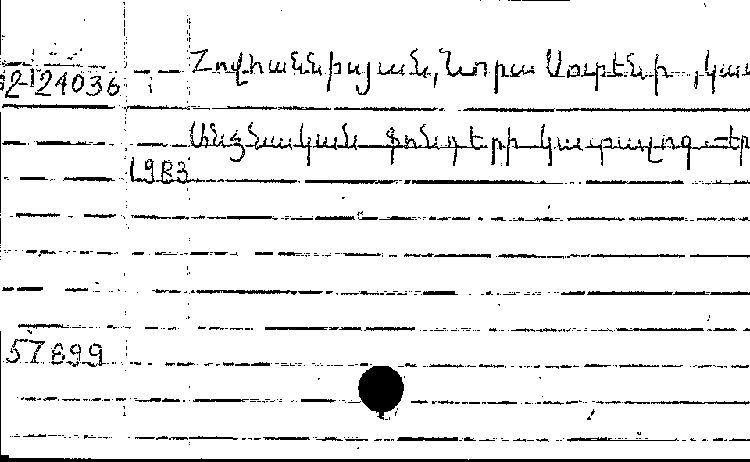 2124036 Հովհաննիսյան, Նորա Սուրենի, կա
Անձնական ֆոնդերի կատալոգ
1983
57899